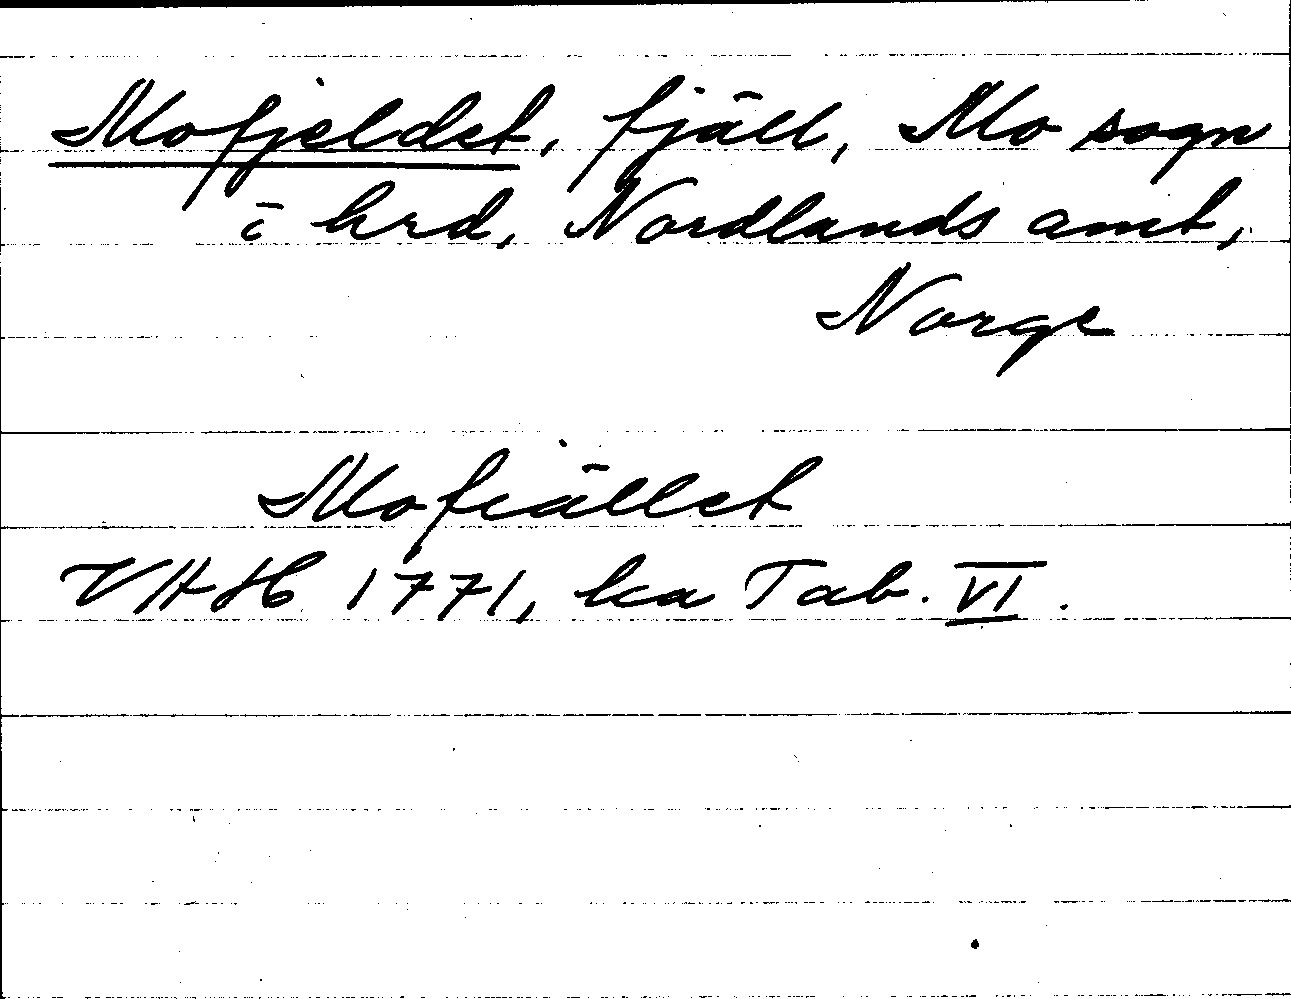 Mofjeldet, fjäll, Mo sogn
i hrd, Nordlands amt,
Norge
Mofiället
VHAH 1771, ka Tab. VI.